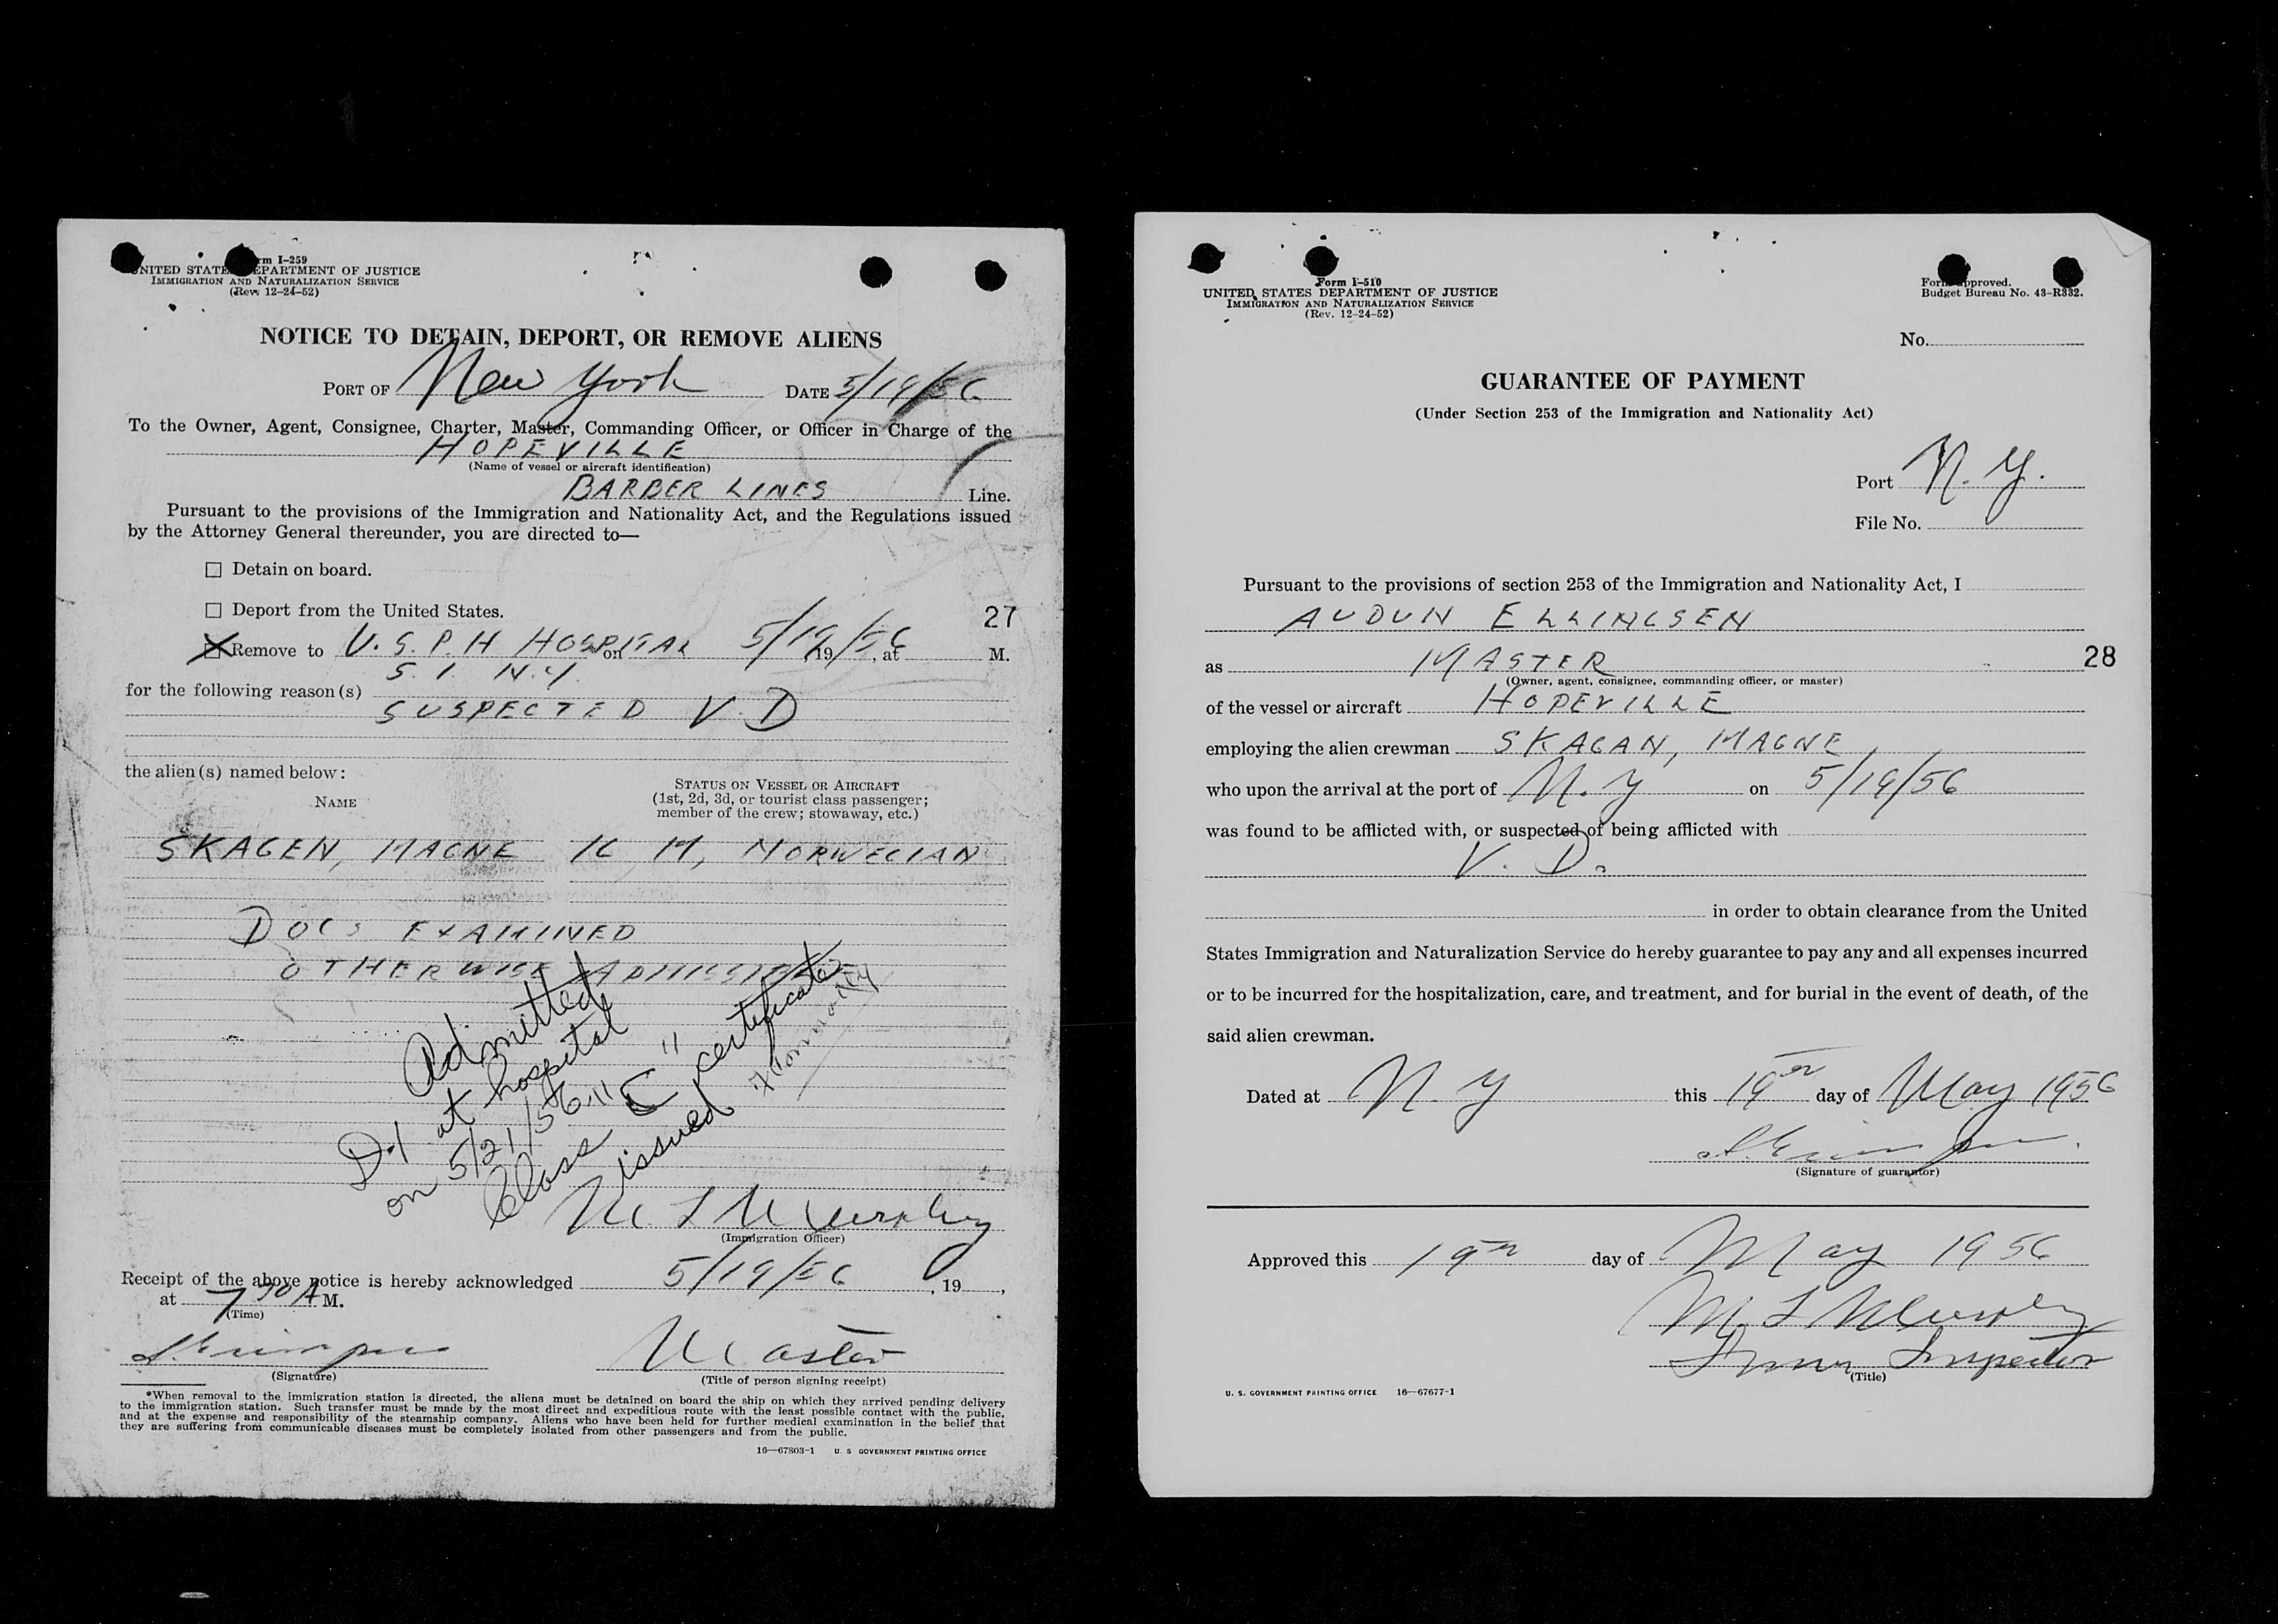 Form I-259
UNITED STATES DEPARTMENT OF JUSTICE
IMMIGRATION AND NATURALIZATION SERVICE
(Rev. 12-24-52)
NOTICE TO DETAIN, DEPORT, OR REMOVE ALIENS
PORT OF New York DATE 5/19/56
To the Owner, Agent, Consignee, Charter, Master, Commanding Officer, or Officer in Charge of the
HOPEVILLE
(Name of vessel or aircraft identification)
BARBER LINES Line.
Pursuant to the provisions of the Immigration and Nationality Act, and the Regulations issued
by the Attorney General thereunder, you are directed to—
☐ Detain on board.
☐ Deport from the United States.
27
☒ Remove to U.S.P.H HOSPITAL on 5/19/56, 19, at M.
S.I. N.Y.
for the following reason(s)
SUSPECTED V.D
the alien(s) named below:
NAME
STATUS ON VESSEL OR AIRCRAFT
(1st, 2d, 3d, or tourist class passenger;
member of the crew; stowaway, etc.)
SKAGEN, MAGNE M, NORWEGIAN
DOCS EXAMINED
OTHERWISE ADMISSIBLE
Admitted
D-1 at hospital
on 5/21/56.
Class "C" certificate
issued
M L Murphy
(Immigration Officer)
Receipt of the above notice is hereby acknowledged 5/19/56, 19,
at 7 30 A M.
(Time)
Master
(Signature)
(Title of person signing receipt)
*When removal to the immigration station is directed, the aliens must be detained on board the ship on which they arrived pending delivery
to the immigration station. Such transfer must be made by the most direct and expeditious route with the least possible contact with the public,
and at the expense and responsibility of the steamship company. Aliens who have been held for further medical examination in the belief that
they are suffering from communicable diseases must be completely isolated from other passengers and from the public.
16—67803-1 U. S GOVERNMENT PRINTING OFFICE
Form I-510
UNITED STATES DEPARTMENT OF JUSTICE
IMMIGRATION AND NATURALIZATION SERVICE
(Rev. 12-24-52)
Form approved.
Budget Bureau No. 43-R332.
No.
GUARANTEE OF PAYMENT
(Under Section 253 of the Immigration and Nationality Act)
Port N.Y.
File No.
Pursuant to the provisions of section 253 of the Immigration and Nationality Act, I
AUDUN ELLINGSEN
as MASTER
28
(Owner, agent, consignee, commanding officer, or master)
of the vessel or aircraft HOPEVILLE
employing the alien crewman SKAGAN, MAGNE
who upon the arrival at the port of N.Y on 5/19/56
was found to be afflicted with, or suspected of being afflicted with
V. D.
in order to obtain clearance from the United
States Immigration and Naturalization Service do hereby guarantee to pay any and all expenses incurred
or to be incurred for the hospitalization, care, and treatment, and for burial in the event of death, of the
said alien crewman.
Dated at N.Y this 19th day of May 1956
(Signature of guarantor)
Approved this 19th day of May 1956
M L Murphy
Immig Inspector
(Title)
U. S. GOVERNMENT PRINTING OFFICE 16—67677-1